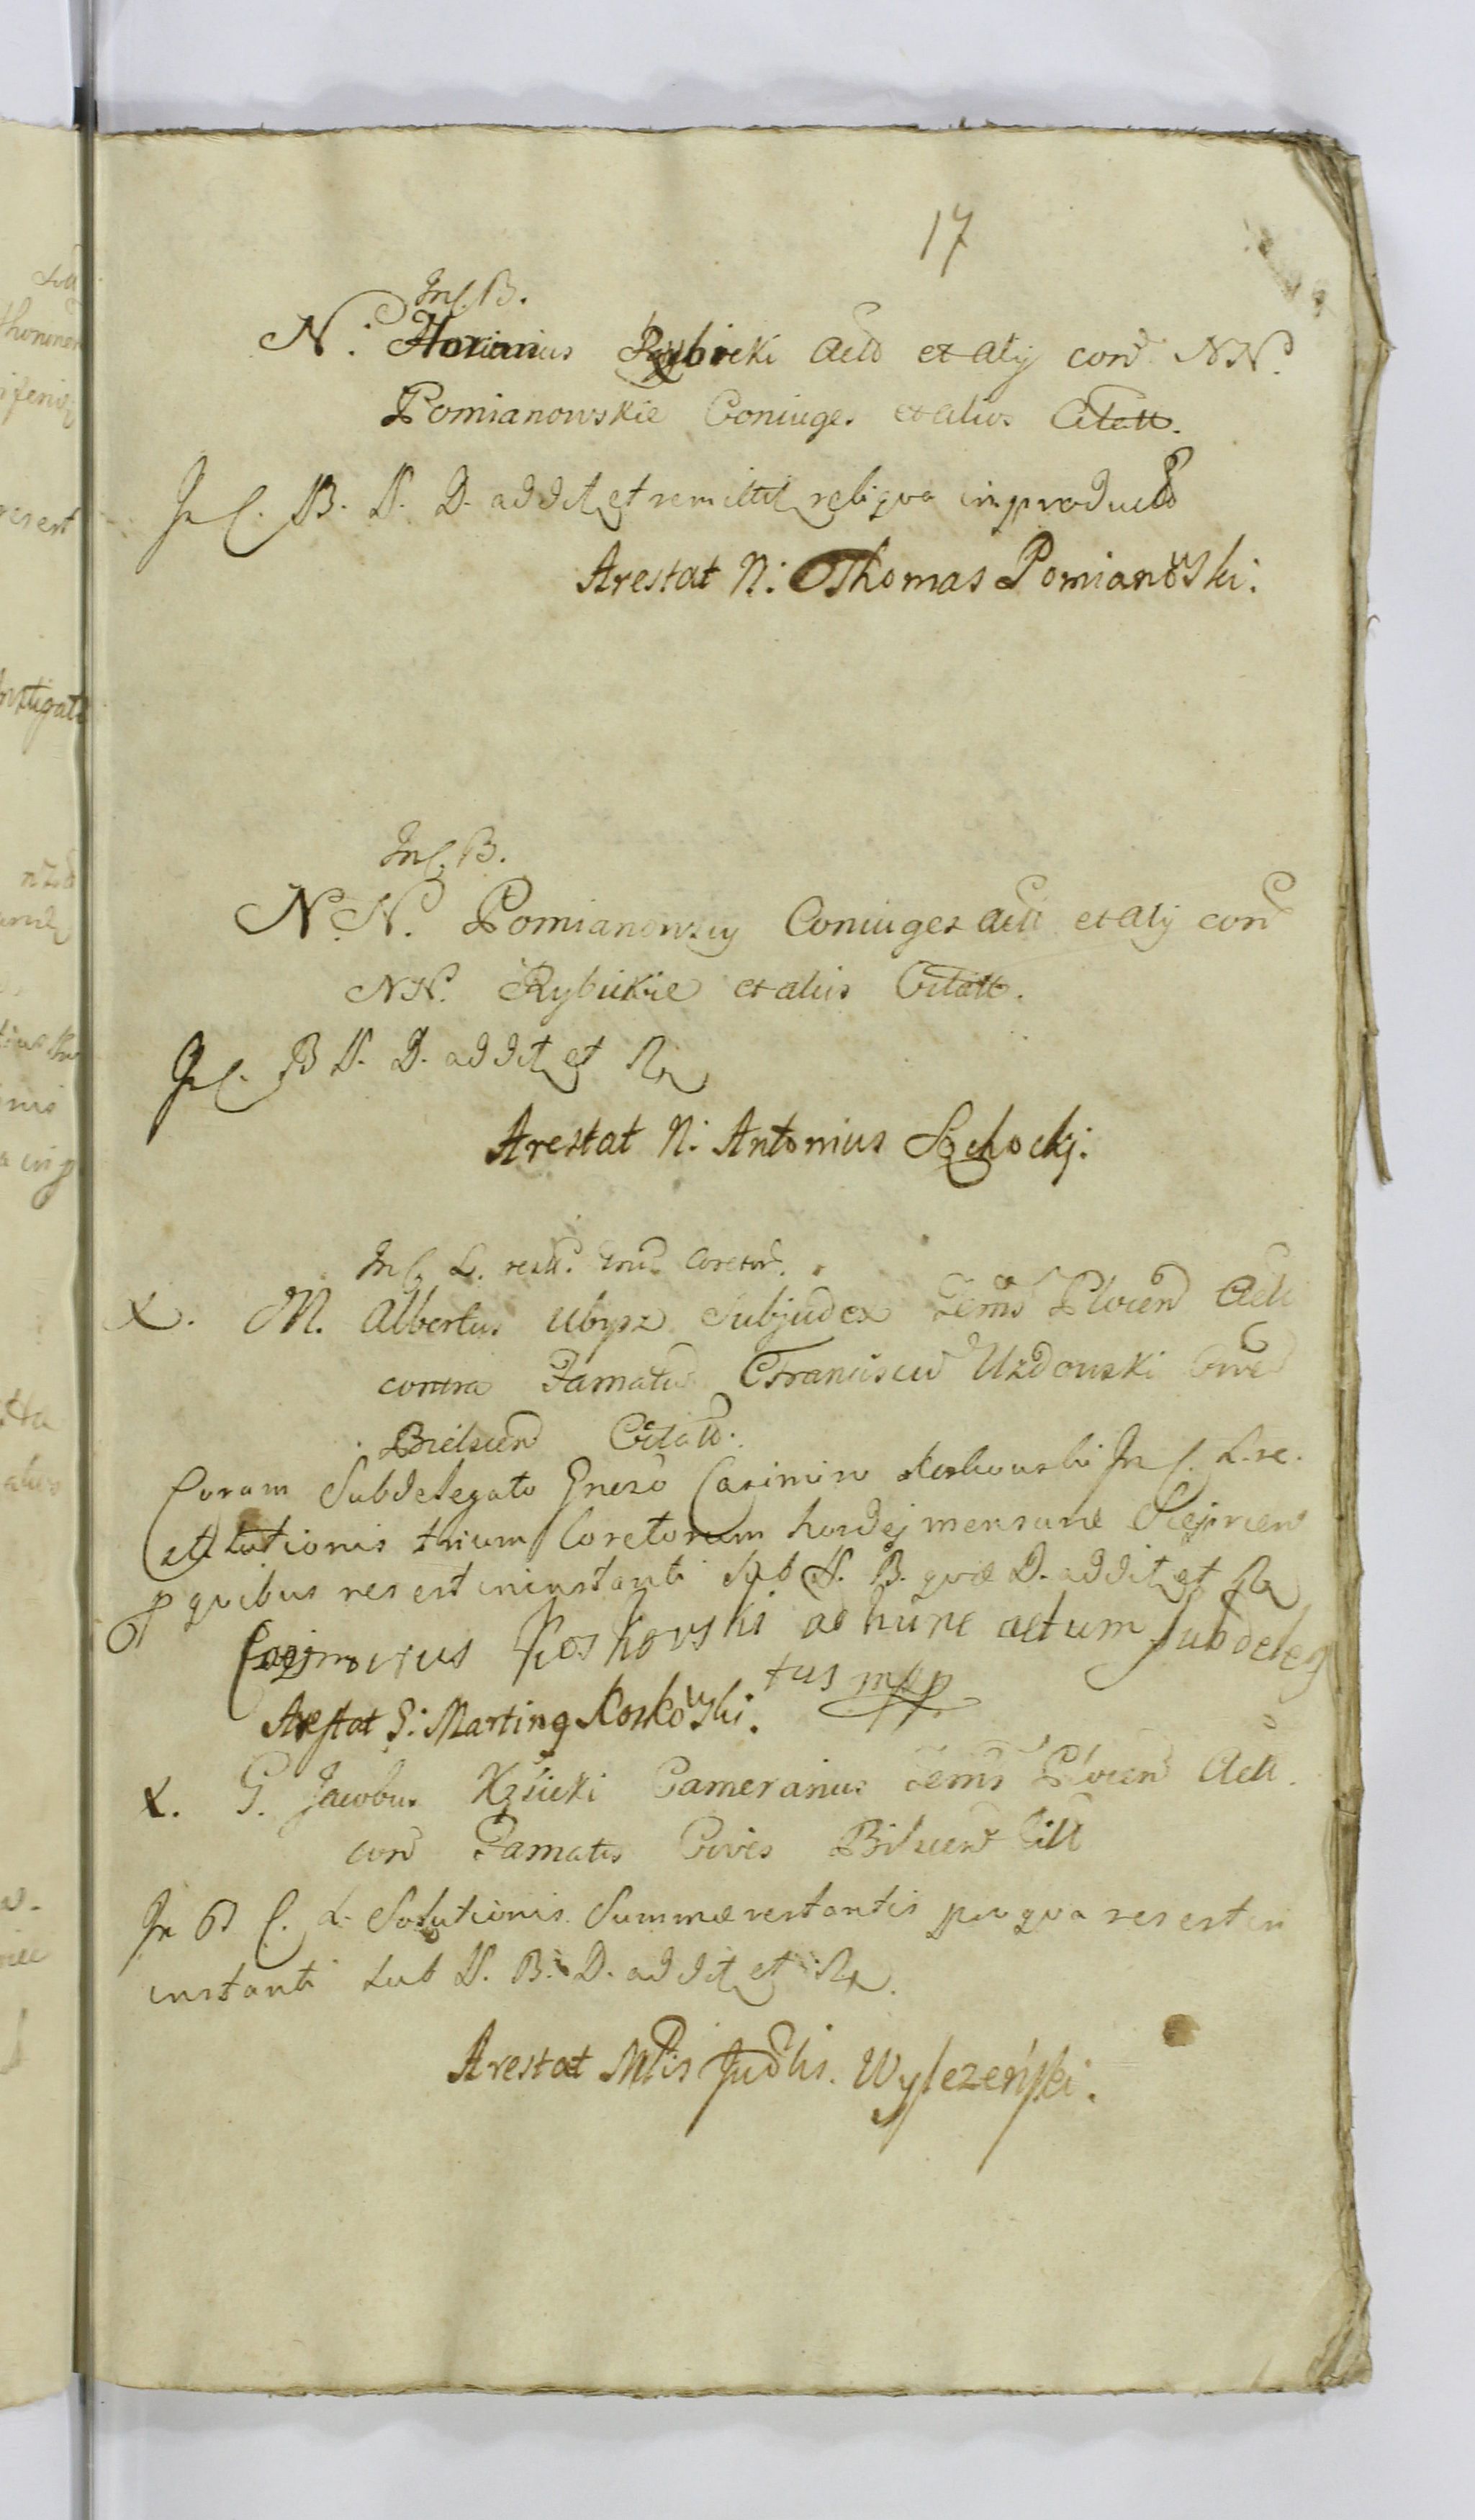 17
In C. B.
N. Florianus Rybicki Act et alij con NN.
Pomianowskie Coniuges et alios Citatt.
In C. B. N. D. addit et remittit reliqua in producto
Arestat N: Thomas Pomianowski.
In C. B.
N.N. Pomianowscy Coniuges act et alij con
NN. Rybickie et alios Citatt.
In C. B N. D. addit et Ra
Arestat N: Antonius Sochockj.
In C. L. restt. trium Coretor.
X. M. Albertus Ubysz Subjudex Terris Plocen Act
contra Famatum Franciscum Uzdowski Civem
Bielscen Citatt.
Coram Subdelegato Gneso Casimiro Koskowski In C. L. re.
stitutionis trium Coretorum hordej mensurae Sieprcen
p quibus res est in instanti sub N. B. quae D. addit et Ra
Cazimirus Koskowski ad hunc actum Subdelega
tus mpp
Arestat G: Martinq Koskowski.
X. G. Jacobus Kzsicki Camerarius Terris Plocen Act.
con Famatos Cives Bilscen Citt
In B C. L. Solutionis Summae restantis pro qua res est in
instanti sub N. B. D. addit et Ra.
Arestat Mtis Judlis. Wylezeński.